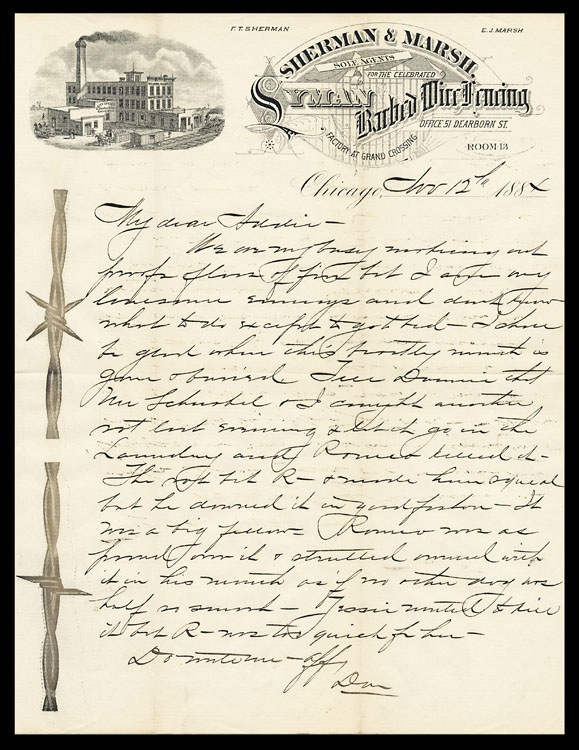 F. T. SHERMAN
E. J. MARSH
SHERMAN & MARSH,
SOLE AGENTS
FOR THE CELEBRATED
LYMAN
Barbed Wire Fencing
OFFICE 51 DEARBORN ST.
FACTORY AT GRAND CROSSING
ROOM 13
Chicago, Nov 12th 1884
My dear Addie -
We are very busy making out
proofs of loss of fire but I am very
lonesome evenings and don't know
what to do except to go to bed - I shall
be glad when this beastly month is
gone & buried Tell Dannie that
Mr & I caught another
rat last evening & let it go in the
Laundry and Romeo killed it -
The rat bit R - & made him squeal
but he downed it in good fashion - It
was a big fellow - Romeo was as
proud over it & strutted around with
it in his mouth as if no other dog was
half so smart - Jessie wanted to kill
it but R - was too quick for her -
Do